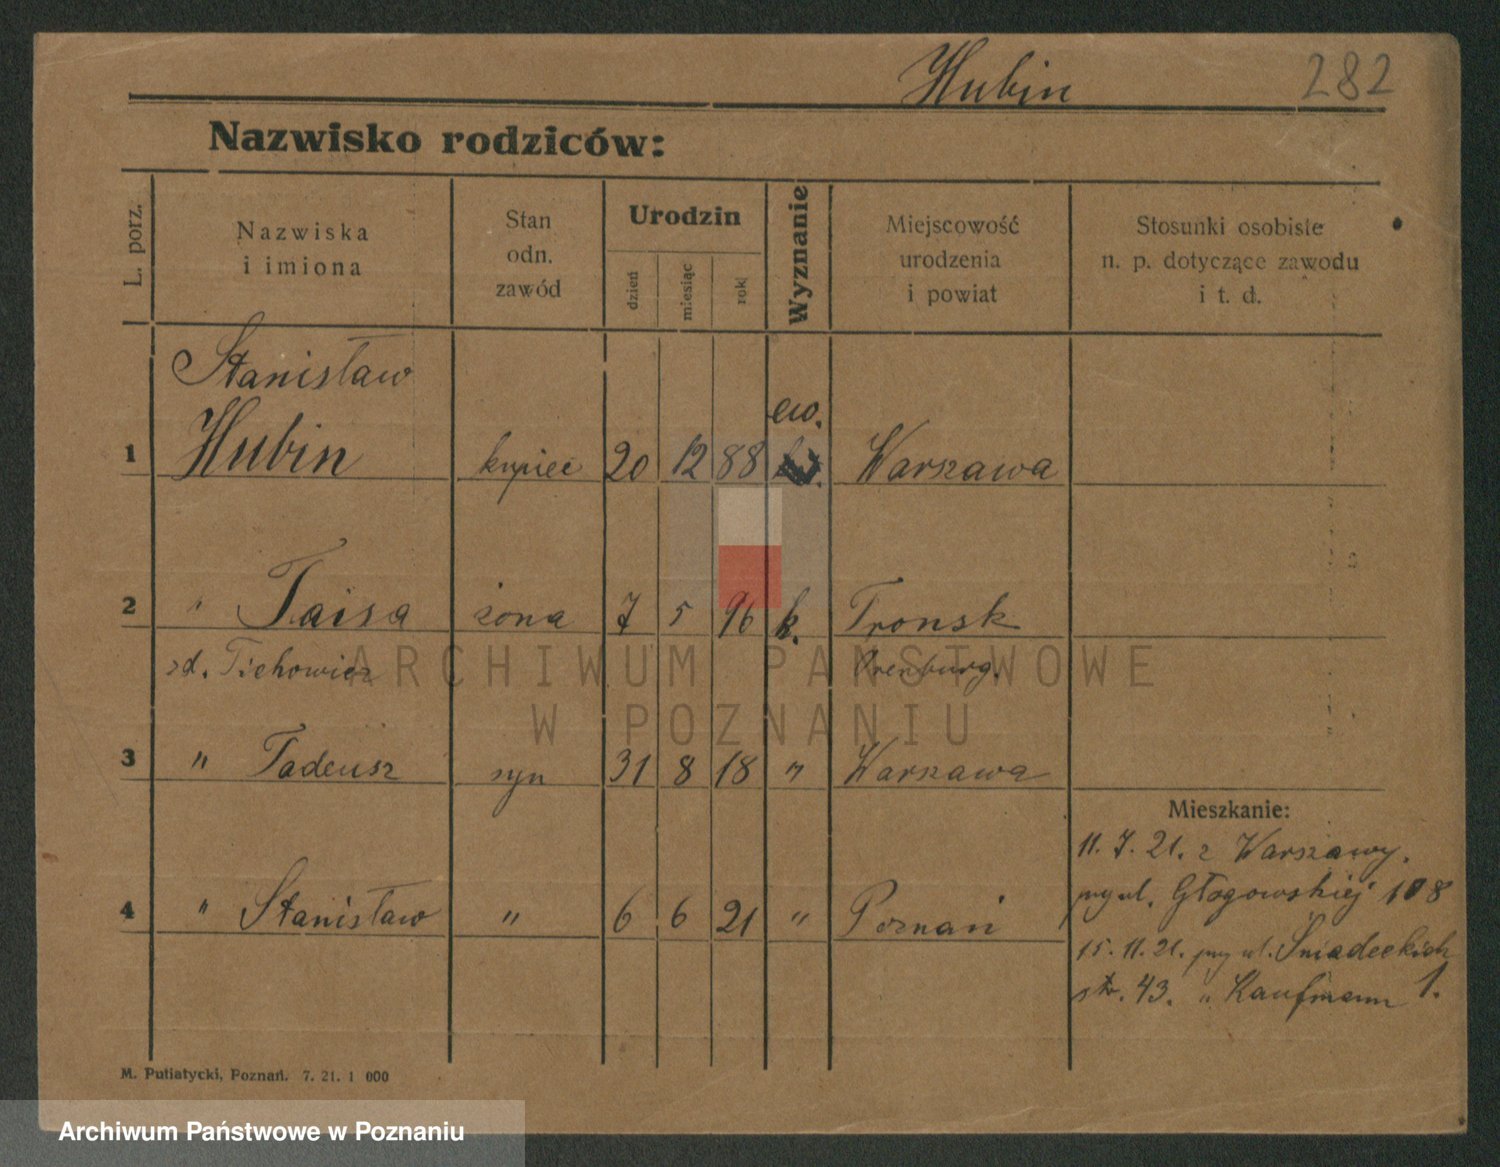 Hubin 282
Nazwisko rodziców:
L. porz.
Nazwiska
i imiona
Stan
odn.
zawód
Urodzin
dzień
miesiąc
rok
Wyznanie
Miejscowość
urodzenia
i powiat
Stosunki osobiste
n. p. dotyczące zawodu
i t. d.
Stanisław
ew.
1 Hubin kupiec 20 12 88 Warszawa
2 " Taisa żona 7 5 96 k. Tronsk
zd. Tichowicz Orenburg.
3 " Tadeusz syn 31 8 18 " Warszawa
Mieszkanie:
11. 7. 21. z Warszawy.
przy ul. Głogowskiej 108
4 " Stanisław " 6 6 21 " Poznań
15. 11. 21. przy ul. Śniadeckich
str. 43. " Kaufmann 1.
M. Putiatycki, Poznań. 7. 21. 1 000
ARCHIWUM PAŃSTWOWE
W POZNANIU
Archiwum Państwowe w Poznaniu